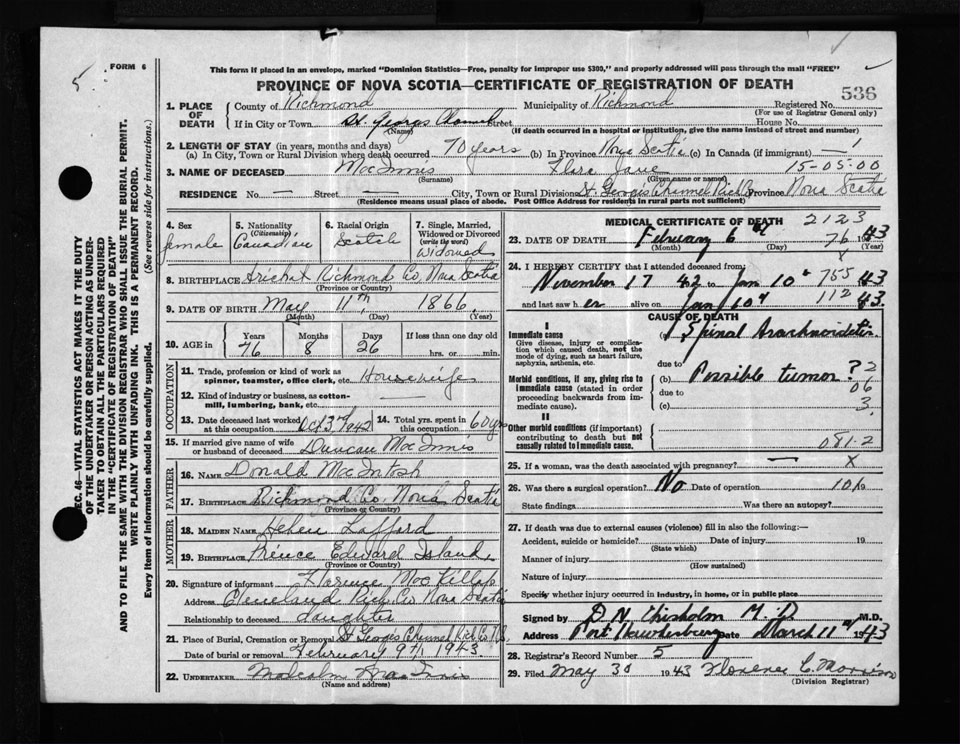 5
FORM 6
This form if placed in an envelope, marked "Dominion Statistics—Free, penalty for improper use $300," and properly addressed will pass through the mail "FREE"
PROVINCE OF NOVA SCOTIA—CERTIFICATE OF REGISTRATION OF DEATH
536
1. PLACE OF DEATH
County of Richmond Municipality of Richmond Registered No.
(For use of Registrar General only)
If in City or Town St. Georges Channel Street House No.
(Name) (If death occurred in a hospital or institution, give the name instead of street and number)
2. LENGTH OF STAY (in years, months and days)
(a) In City, Town or Rural Division where death occurred 70 years (b) In Province Nova Scotia (c) In Canada (if immigrant) —
3. NAME OF DECEASED MacInnis Flora Jane 15-05-00
(Surname) (Given name or names)
RESIDENCE No. — Street — City, Town or Rural Division St. Georges Channel Rich. Co. Province Nova Scotia
(Residence means usual place of abode. Post Office Address for residents in rural parts not sufficient)
4. Sex
female
5. Nationality (Citizenship)
Canadian
6. Racial Origin
Scotch
7. Single, Married, Widowed or Divorced (write the word)
Widowed
8. BIRTHPLACE Arichat Richmond Co. Nova Scotia
(Province or Country)
9. DATE OF BIRTH May 11th, 1866
(Month) (Day) (Year)
10. AGE in Years Months Days If less than one day old
76 8 26 hrs. or min.
OCCUPATION
11. Trade, profession or kind of work as spinner, teamster, office clerk, etc. Housewife
12. Kind of industry or business, as cotton-mill, lumbering, bank, etc. —
13. Date deceased last worked at this occupation Oct 3rd 1942
14. Total yrs. spent in this occupation 60 yrs
15. If married give name of wife or husband of deceased Duncan MacInnis
FATHER
16. Name Donald MacIntosh
17. Birthplace Richmond Co. Nova Scotia
(Province or Country)
MOTHER
18. MAIDEN NAME Helen Lafford
19. BIRTHPLACE Prince Edward Island
(Province or Country)
20. Signature of informant Florence MacKillop
Address Cleveland Rich. Co. Nova Scotia
Relationship to deceased daughter
21. Place of Burial, Cremation or Removal St Georges Channel Rich Co. N.S.
Date of burial or removal February 9th 1943
22. UNDERTAKER Malcolm MacInnis
(Name and address)
MEDICAL CERTIFICATE OF DEATH 2123
23. DATE OF DEATH February 6th 76 1943
(Month) (Day) (Year)
24. I HEREBY CERTIFY that I attended deceased from:
November 17 42 to Jan 10th 755 43
and last saw her alive on Jan 10th 112 43.
CAUSE OF DEATH
I
Immediate cause
Give disease, injury or complication which caused death, not the mode of dying, such as heart failure, asphyxia, asthenia, etc.
Spinal Arachnoiditis
due to
Morbid conditions, if any, giving rise to immediate cause (stated in order proceeding backwards from immediate cause).
(b) Possible tumor? 2
due to 06
(c) 3.
II
Other morbid conditions (if important) contributing to death but not causally related to immediate cause.
081.2
25. If a woman, was the death associated with pregnancy? — X
26. Was there a surgical operation? No Date of operation 10 19
State findings Was there an autopsy?
27. If death was due to external causes (violence) fill in also the following:—
Accident, suicide or homicide? Date of injury 19
(State which)
Manner of injury
(How sustained)
Nature of injury
Specify whether injury occurred in industry, in home, or in public place
Signed by D. N. Chisholm M.D. M.D.
Address Port Hawkesbury Date March 11th 1943
28. Registrar's Record Number 5
29. Filed May 30 1943 Florence C. Morrison
(Division Registrar)
SEC. 46—VITAL STATISTICS ACT MAKES IT THE DUTY
OF THE UNDERTAKER OR PERSON ACTING AS UNDER-
TAKER TO OBTAIN ALL THE PARTICULARS REQUIRED
IN THE "CERTIFICATE OF REGISTRATION OF DEATH"
AND TO FILE THE SAME WITH THE DIVISION REGISTRAR WHO SHALL ISSUE THE BURIAL PERMIT.
WRITE PLAINLY WITH UNFADING INK. THIS IS A PERMANENT RECORD.
Every item of information should be carefully supplied. (See reverse side for instructions.)